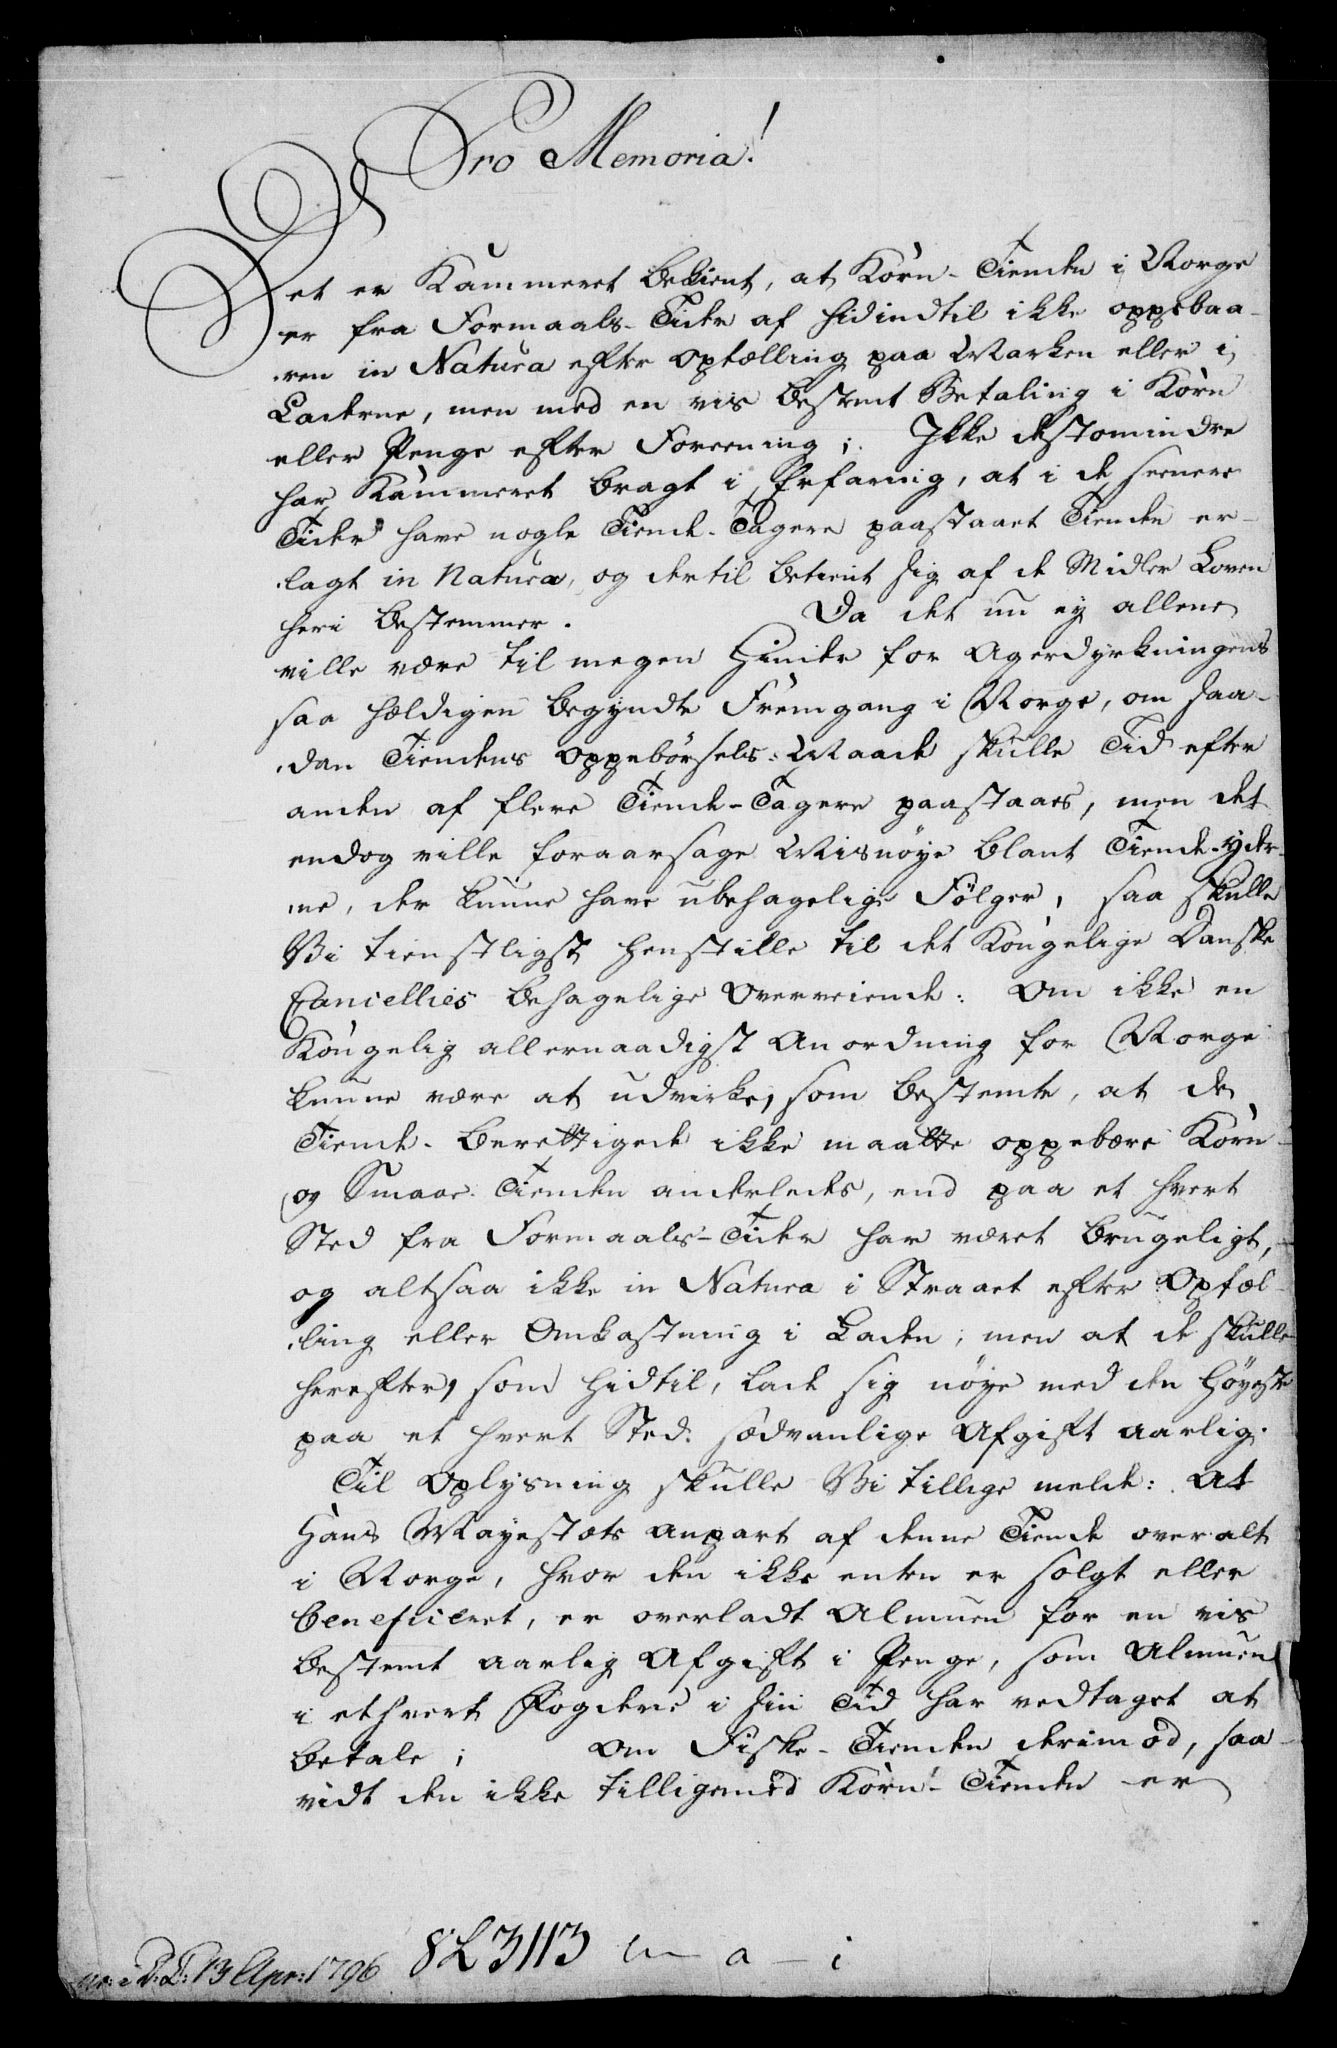 Pro Memoria!
Det er Kammeret bekient, at Korn-Tienden i Norge
er fra Formaals-Tider af hidindtil ikke oppebaa-
ren in Natura efter Optælling paa Marken eller i
Laderne, men med en vis bestemt Betaling i Korn
eller Penge efter Foreening; Ikke destomindre
har Kammeret bragt i Erfaring, at i de seenere
Tider have nogle Tiende-Tagere paastaaet Tienden er-
lagt in Natura, og dertil betient sig af de Midler Loven
heri bestemmer. Da det nu ey allene
ville være til megen Hinder for Agerdyrkningens
saa heldigen begyndte Fremgang i Norge, om saa-
dan Tiendens Oppebørsels-Maade skulle Tid efter
anden af flere Tiende-Tagere paastaaes, men det
endog ville foraarsage Misnøye blant Tiende-yder-
ne, der kunne have ubehagelige Følger, saa skulle
Vi tienstligst henstille til det Kongelige Danske
Cancellies behagelige Overveiende: Om ikke en
Kongelig allernaadigst Anordning for Norge
kunne være at udvirke, som bestemte, at de
Tiende-berettigede ikke maatte oppebære Korn-
og Smaae-Tienden anderledes, end paa et hvert
Sted fra Formaals-Tider har været brugeligt,
og altsaa ikke in Natura i Straaet efter Optæl-
ling eller Omkastning i Laden, men at de skulle
herefter, som hidtil, lade sig nøye med den høyeste
paa et hvert Sted sædvanlige Afgift aarlig.
Til Oplysning skulle Vi tillige melde: At
Hans Mayestæts Anpart af denne Tiende overalt
i Norge, hvor den ikke enten er solgt eller
beneficeret, er overladt Almuen for en vis
bestemt aarlig Afgift i Penge, som Almuen
i ethvert Fogderie i sin Tid har vedtaget at
betale; Om Fiske-Tienden derimod, saa-
vidt den ikke tilligemed Korn-Tienden er
13 Apr: 1796 3113 a - i